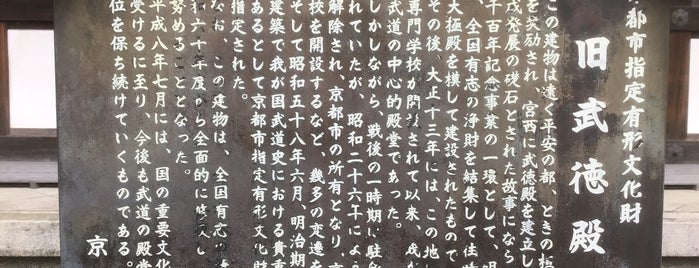 都市指定有形文化財
旧武徳殿
この建物は遠く平安の都、ときの桓
を奨励され、宮西に武徳殿を建立し
茂発展の礎石とされた故事になら
千百年記念事業の一環として、明
全国有志の浄財を結集して往時
大極殿を模して建設されたもので
その後、大正十三年には、この地
専門学校が開設されて以来、我が
武道の中心的殿堂であった。
しかしながら、戦後の一時期に駐
解除され、京都市の所有となり、京
れていたが、昭和二十六年によう
校を開設するなど、幾多の変遷を
そして昭和五十八年六月、明治期
建築で我が国武道史における貴重
あるとして京都市指定有形文化財
指定された。
なお、この建物は、全国有志の
和六十年度から全面的に修復し
努めることとなった。
平成八年七月には、国の重要文化
受けるに至り、今後も武道の殿堂
位を保ち続けていくものである。
京